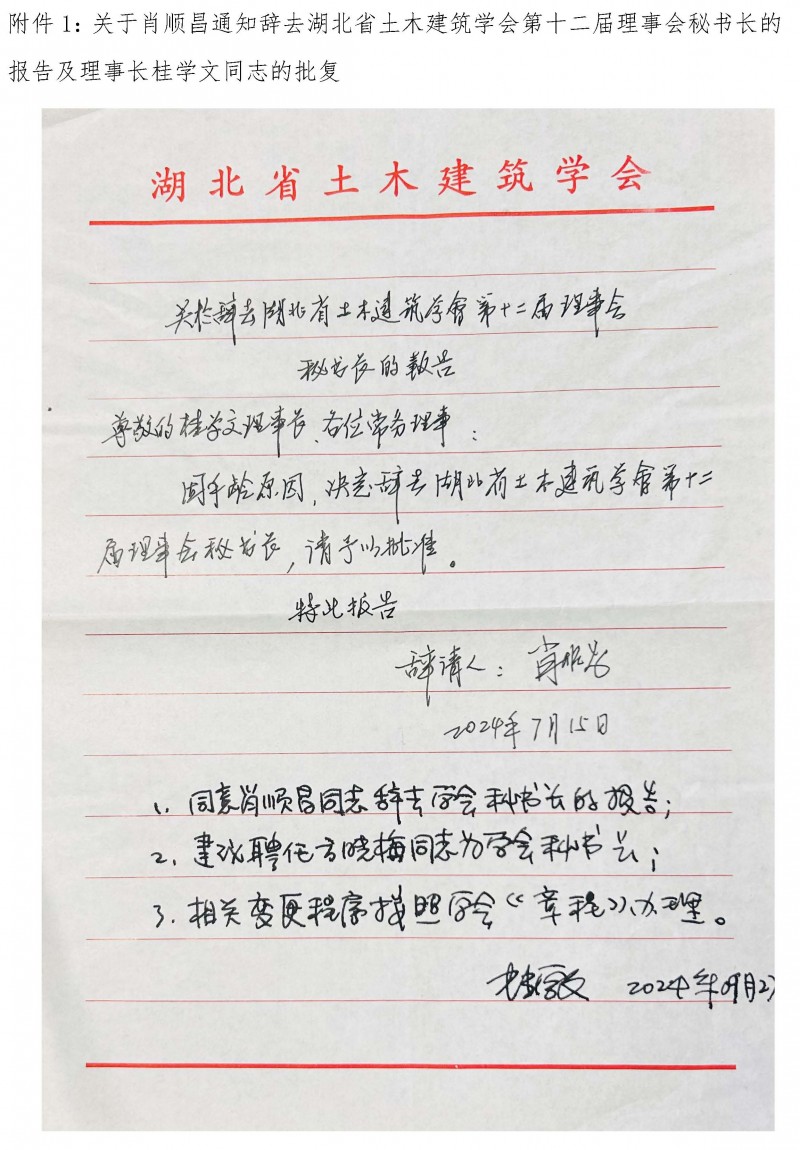 附件 1：关于肖顺昌通知辞去湖北省土木建筑学会第十二届理事会秘书长的
报告及理事长桂学文同志的批复
湖北省土木建筑学会
关於辞去湖北省土木建筑学會第十二届理事会
秘书长的報告
尊敬的桂学文理事长、各位常务理事：
因年龄原因，决定辞去湖北省土木建筑学會第十二
届理事会秘书长，请予以批准。
特此报告
辞请人：肖顺昌
2024年7月15日
1、同意肖顺昌同志辞去学会秘书长的报告；
2、建议聘任方晓梅同志为学会秘书长；
3、相关变更程序按照学会《章程》办理。
桂学文 2024年09月2